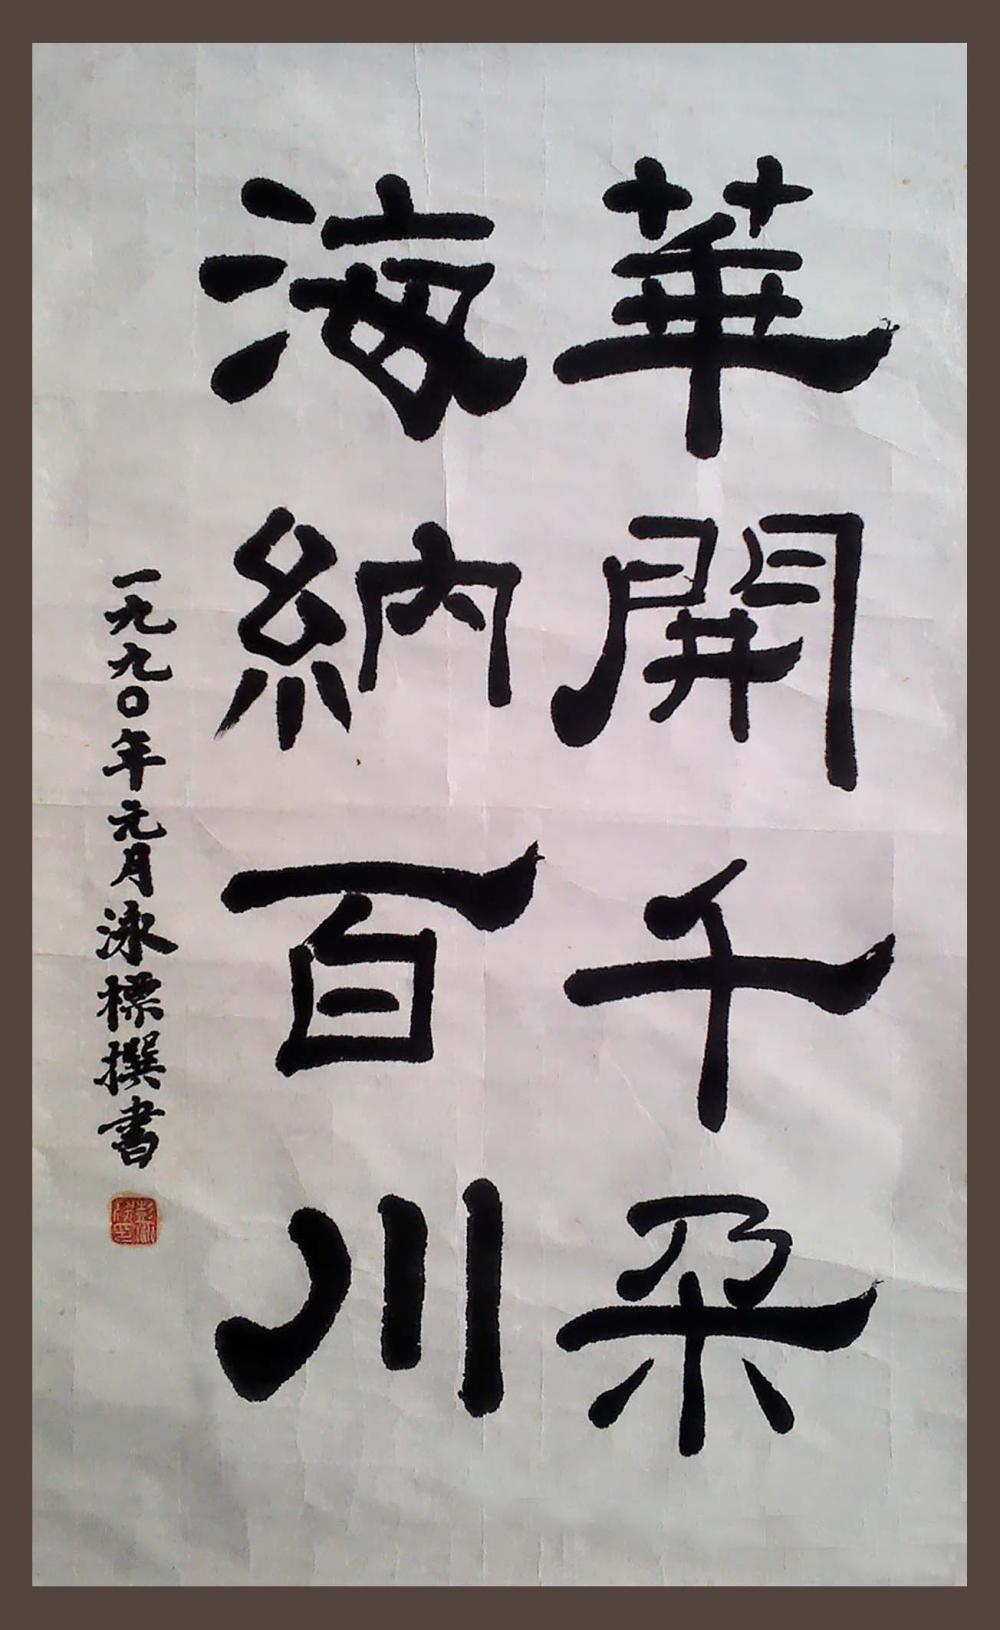 華開千朶
海納百川
一九九〇年元月泳標撰書